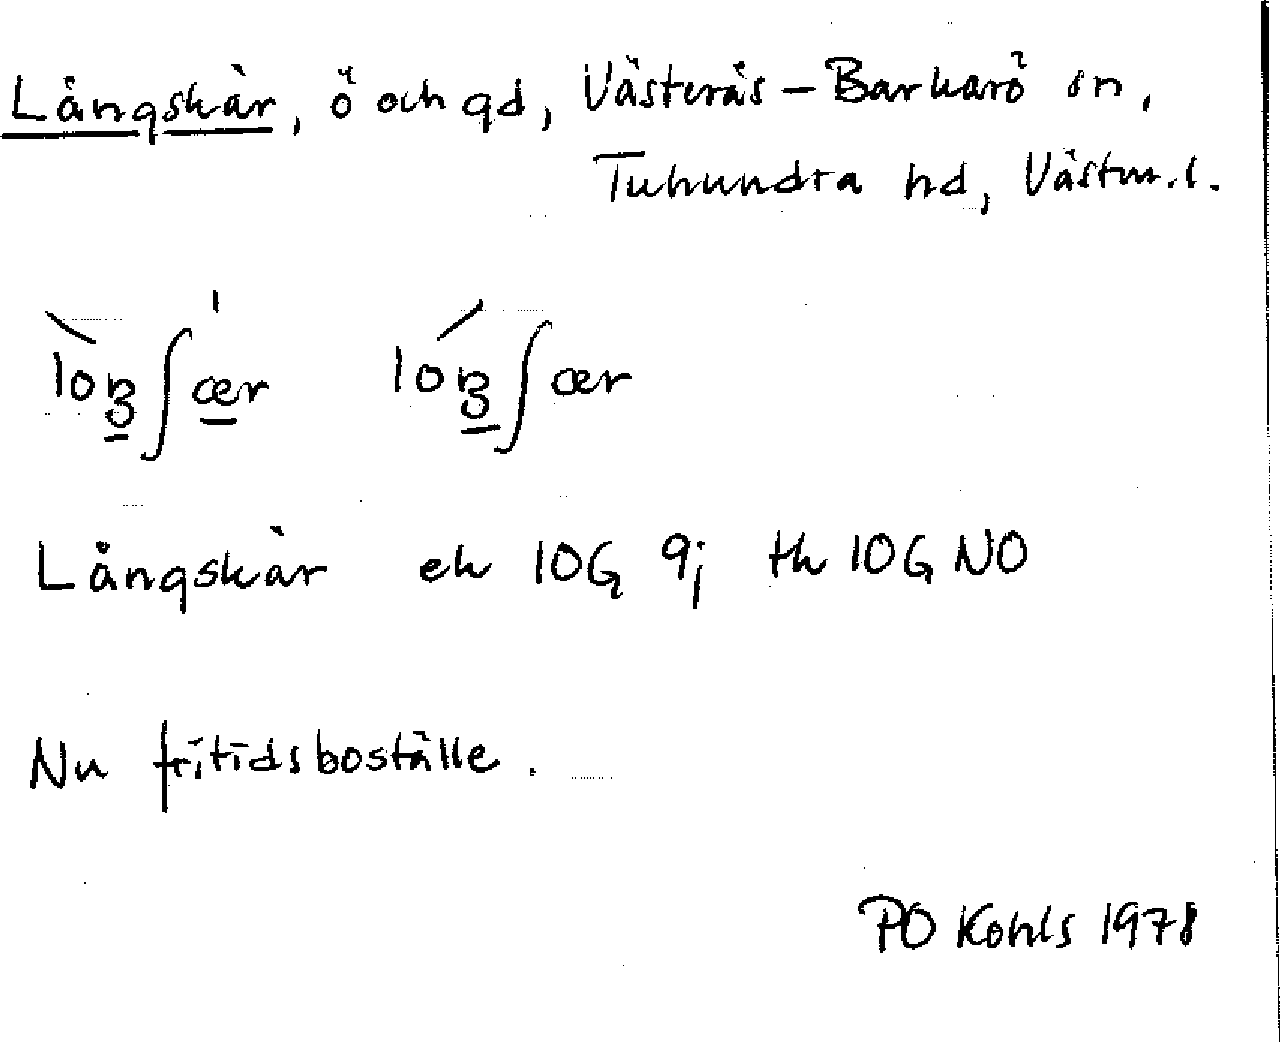 Långskär, ö och gd, Västerås-Barkarö sn,
Tuhundra hd, Västm.l.
Långskär ek 10G 9j th 10G NO
Nu fritidsboställe.
PO Kohls 1978